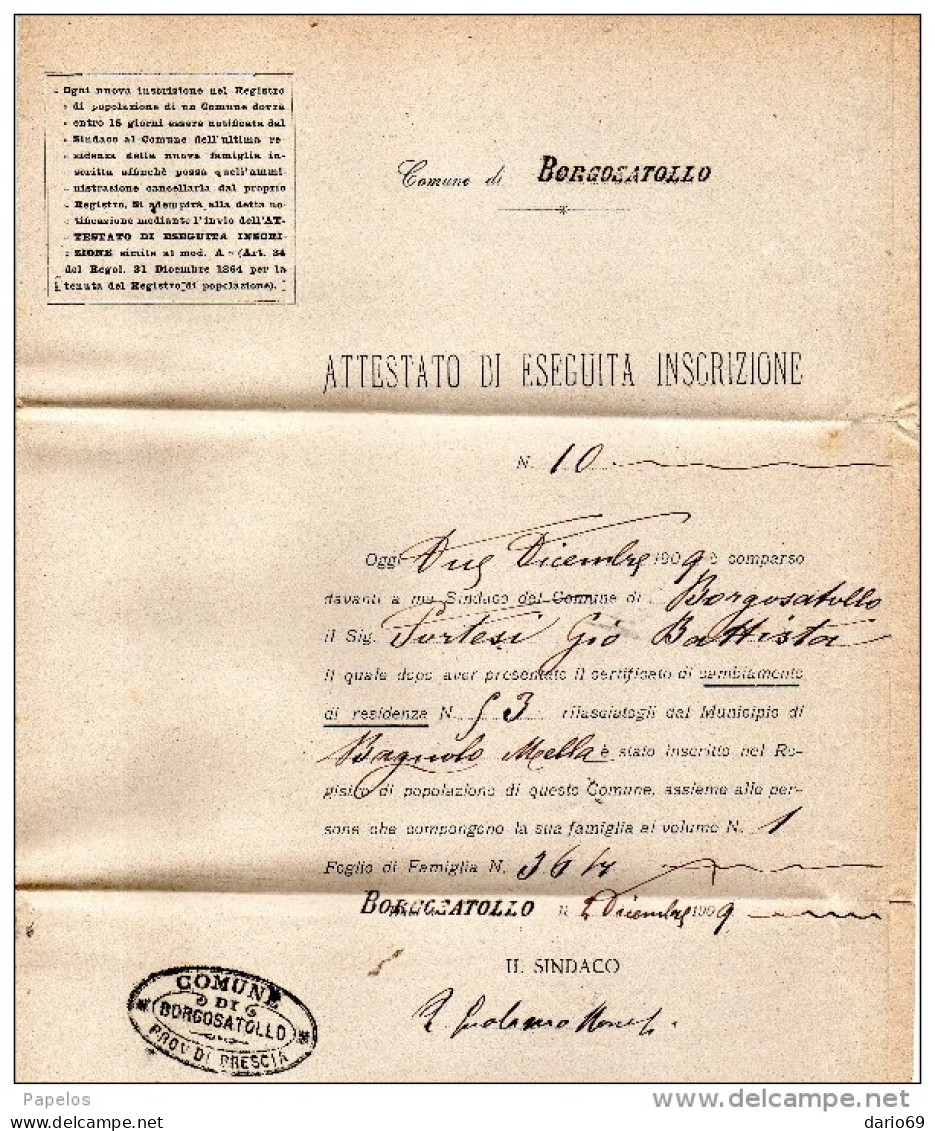 „ Ogni nuova inscrizione nel Registro
„ di popolazione di un Comune dovrà
„ entro 15 giorni essere notificata dal
„ Sindaco al Comune dell'ultima re-
„ sidenza della nuova famiglia in-
„ scritta affinchè possa quell'ammi-
„ nistrazione cancellarla dal proprio
„ Registro. Si adempirà alla detta no-
„ tificazione mediante l'invio dell'AT-
„ TESTATO DI ESEGUITA INSCRI-
„ ZIONE simile al mod. A „ (Art. 34
del Regol. 31 Dicembre 1864 per la
tenuta del Registro di popolazione).
Comune di BORGOSATOLLO
ATTESTATO DI ESEGUITA INSCRIZIONE
N. 10
Oggi Due Dicembre 1909 è comparso
davanti a me Sindaco del Comune di Borgosatollo
il Sig. Portesi Gio Battista
il quale dopo aver presentato il certificato di cambiamento
di residenza N. 53 rilasciatogli dal Municipio di
Bagnolo Mella è stato inscritto nel Re-
gistro di popolazione di questo Comune, assieme alle per-
sone che compongono la sua famiglia al volume N. 1
Foglio di Famiglia N. 364
BORGOSATOLLO li 2 Dicembre 1909
IL SINDACO
COMUNE
DI
BORGOSATOLLO
PROV DI BRESCIA
Papelos
www.delcampe.net
dario69